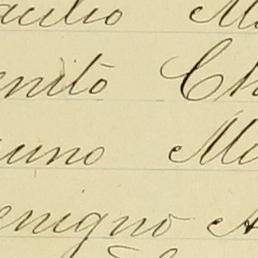 acilio M
enito Ch
uno M
enigno A